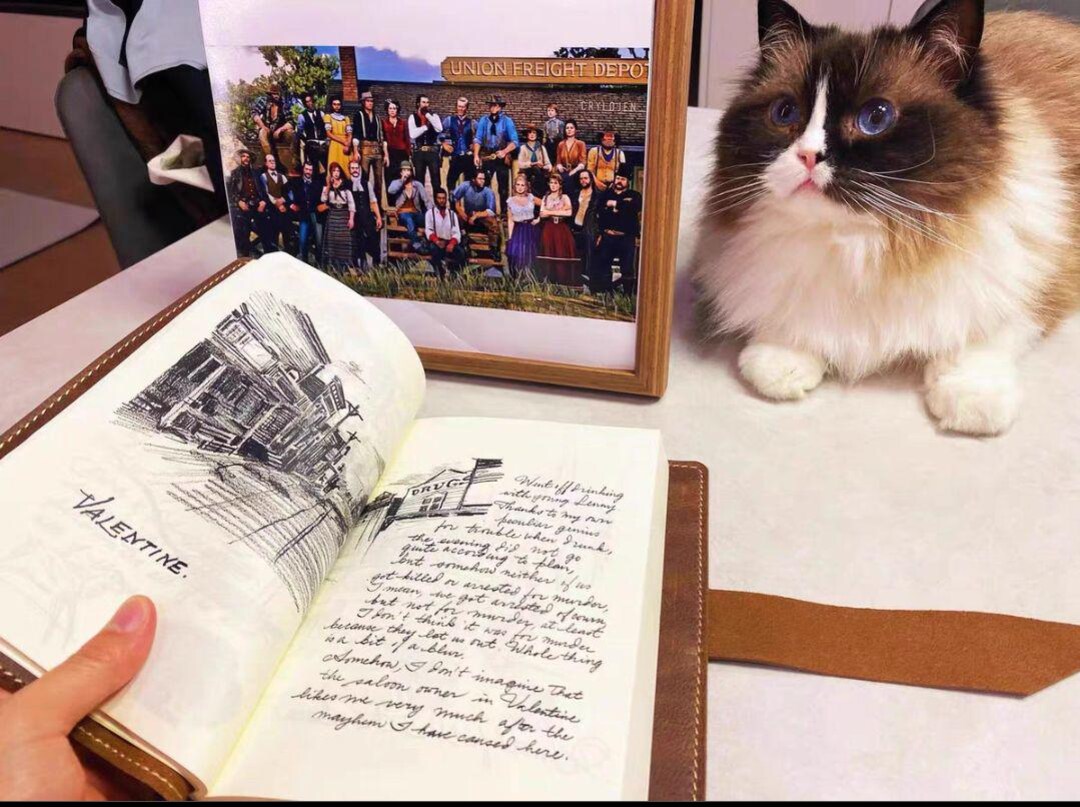 UNION FREIGHT DEPO
VALENTINE.
DRUGS
Went off drinking
with young Lenny
Thanks to my own
peculiar genius
for trouble when drunk,
the evening did not go
quite according to plan,
but somehow neither of us
got killed or arrested for murder,
I mean, we got arrested of course
but not for murder, at least
I don't think it was for murder
because they let us out. Whole thing
is a bit of a blur.
Somehow, I don't imagine that
the saloon owner in Valentine
likes me very much after the
mayhem I have caused here.